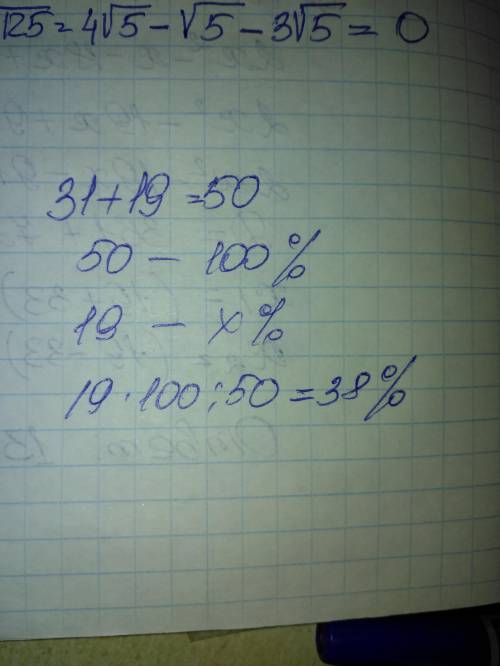 √125 = 4√5 - √5 - 3√5 = 0
31+19=50
50 - 100%
19 - x%
19·100:50=38%